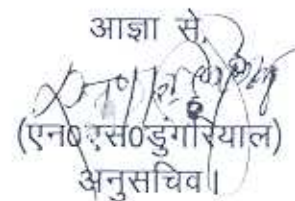 आज्ञा से,
(एन0 एस0डुंगरियाल)
अनुसचिव।